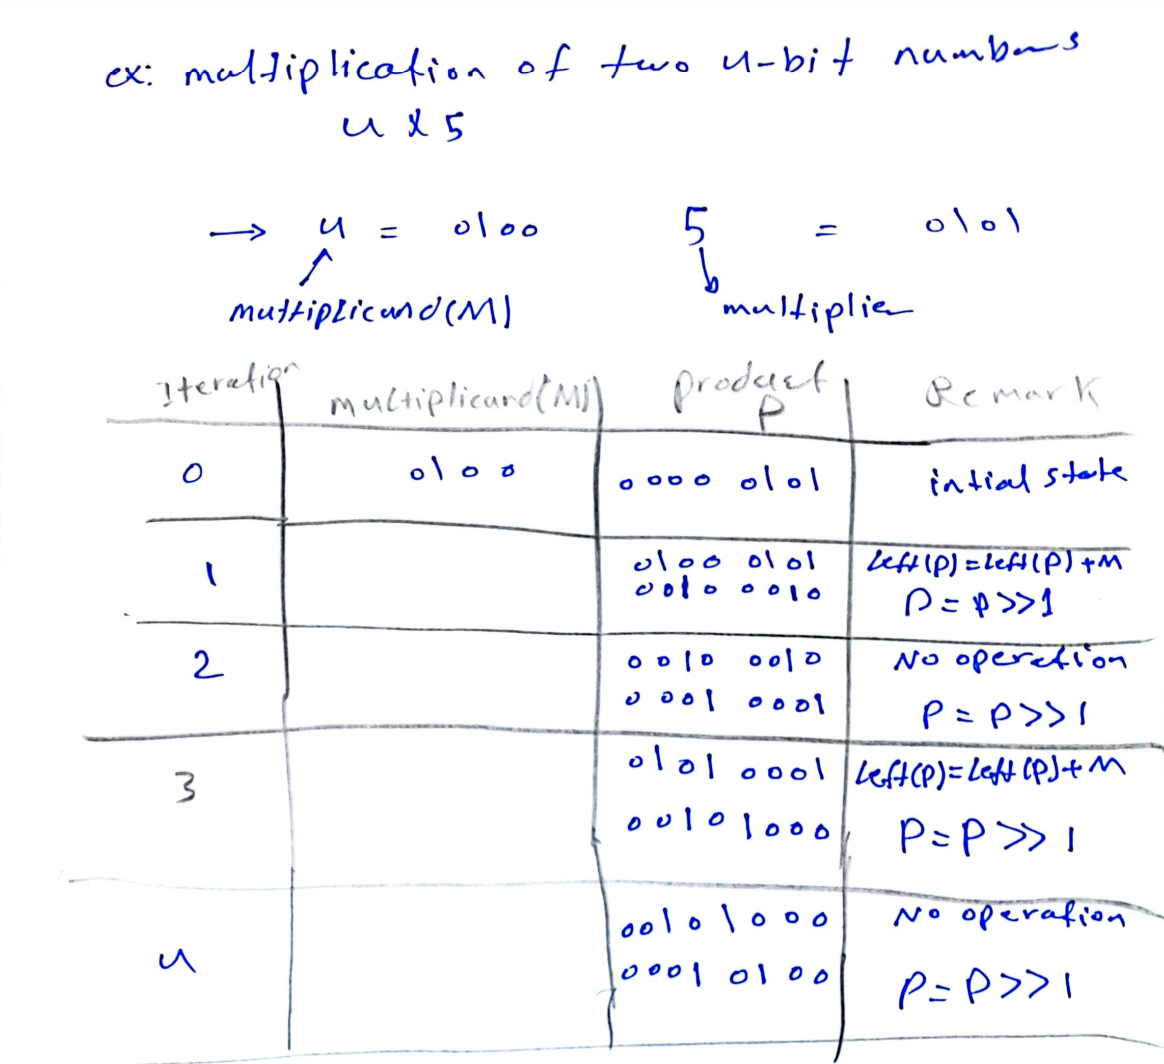 ex: multiplication of two 4-bit numbers
4 x 5
→ 4 = 0100 5 = 0101
multiplicand(M) multiplier
Iteration multiplicand(M) product P Remark
0 0100 0000 0101 intial state
1 0100 0101 Left(P)=Left(P)+M
0010 0010 P=P>>1
2 0010 0010 No operation
0001 0001 P=P>>1
3 0101 0001 Left(P)=Left(P)+M
0010 1000 P=P>>1
4 0010 1000 No operation
0001 0100 P=P>>1